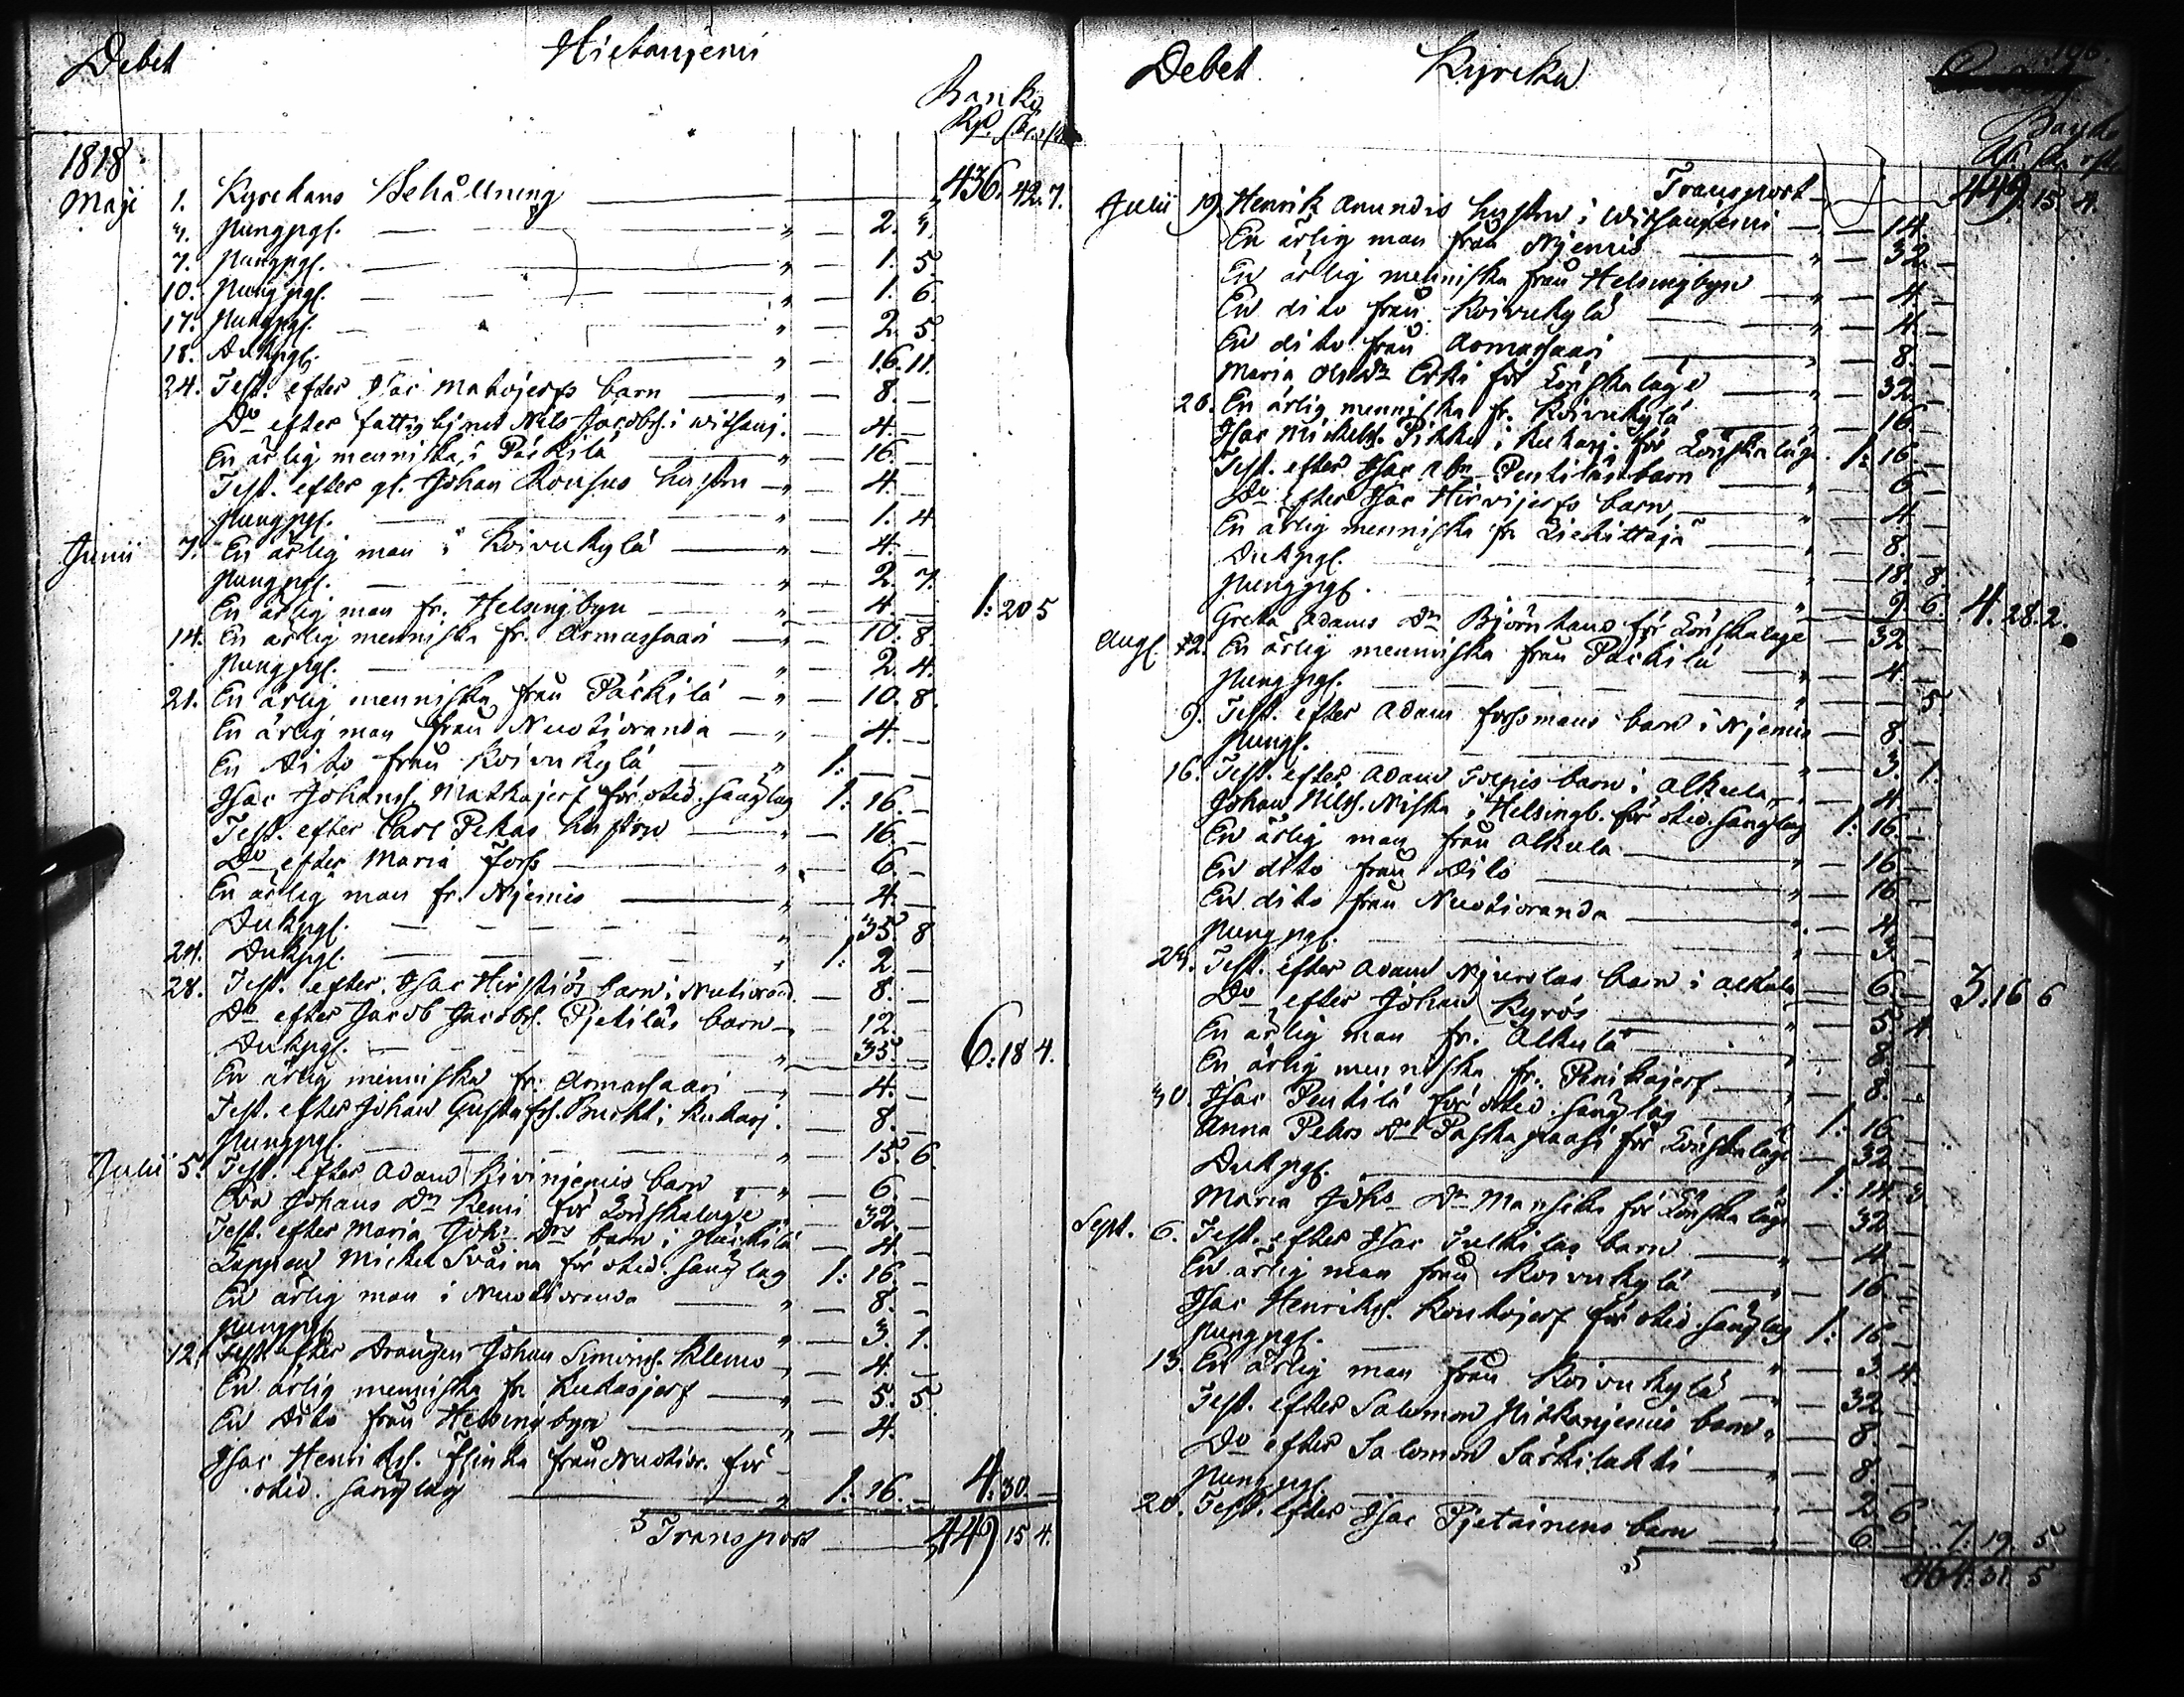 Debet Hietaniemi
Banko
Rd. sk. rst.
1818
Maji 1. Kyrckans Behållning 436. 42. 7.
3. Pungpgr. 2. 3.
7. Pungpgr. 1. 5.
10. Pungpgr. 1. 6.
17. Pungpgr. 2. 5.
18. Dukpgr. 16. 11.
24. Test. efter Isac Matojerfs barn 8. —
Do efter fattighjonet Nils Jacobss. i Witsanj. 4. —
En ärlig menniska i Päckilä 16. —
Test. efter gl. Johan Rousus hustru 4. —
Pungpgr. 1. 4
Junii 7. En ärlig man i Koivukylä 4. —
Pungpgr. 2. 7.
En ärlig man fr. Helsingbyn 4. — 1: 20 5
14. En ärlig menniska fr. Armassaari 10. 8.
Pungpgr. 2. 4.
21. En ärlig menniska från Päckilä 10. 8.
En ärlig man från Nuotioranda 4. —
En dito från Koivukylä 1: — —
Isac Johanss. Matkajerf för otid. sänglag 1: 16. —
Test. efter Carl Pekas hustru 16. —
Do efter Maria Forss 6. —
En ärlig man fr. Niemis 4. —
Dukpgr. 35. 8
24. Dukpgr. 1: 2 —
28. Test. efter Isac Hirstiös barn i Nutiorand. 8. —
Do efter Jacob Jacobss. Pjetiläs barn 12. —
Dukpgr. 35. — 6: 18 4.
En ärlig menniska fr. Armassaari 4. —
Test. efter Johan Gustafss. Buckt i Kukasj. 8. —
Pungpgr. 15. 6.
Julii 5. Test. efter Adam Kiviniemis barn 6. —
Eva Johans Dr Kemi för Lönskaläge 32. —
Test. efter Maria Joh. Drs barn i Päckilä 4. —
Lappen Mickel Svåina för otid. sänglag 1: 16. —
En ärlig man i Nuotioranda 8. —
Pungpgr. 3. 1.
12. Test. efter Drängen Johan Simonss. Klemo 4. —
En ärlig menniska fr. Kukasjerf 5. 5.
En dito från Helsingbyn 4.
Isac Henrikss. Flinka från Nuotior. för
otid. sänglag 1: 16. — 4: 30. —
Transport 449. 15 4.
Debet Kyrcka
Transport 449. 15 4.
Julii 19. Henrik Anundis hustru i Witsaniemi 14.
En ärlig man från Niemis 32. —
En ärlig menniska från Helsingbyn 4. —
En dito från Koivukylä 4. —
En dito från Armassaari 8. —
Maria Ols Dr Erki för Lönskaläge 32. —
26. En ärlig menniska fr. Koivukylä 16. —
Isac Mickelss. Pikku i Kukasj. för Lönskaläge 1: 16. —
Test. efter Isac Abr. Pentiläs barn 6. —
Do efter Isac Hirvijerfs barn 4. —
En ärlig menniska fr. Liekittäjä 8. —
Dukpgr. 18. 8.
Pungpgr. 9. 6. 4. 28. 2.
Greta Adams Dr Björnhans för Lönskaläge 32 —
Aug. 2. En ärlig menniska från Päckilä 4. —
Pungpgr. 5.
9. Test. efter Adam Forssmans barn i Niemis 8 —
Pungp. 3. 1.
16. Test. efter Adam Tolpis barn i Alkula 4 —
Johan Nilss. Niska i Helsingb. för otid. sänglag 1: 16. —
En ärlig man från Alkula 16 —
En dito från dito 16 —
En dito från Nuotioranda 4. —
Pungpgr. 3. —
23. Test. efter Adam Niurolas barn i Alkula 6 — 3. 16 6
Do efter Johan Kyrös 5 4.
En ärlig man fr. Alkula 8. —
En ärlig menniska fr. Penikajerf 8. —
30. Isac Pentilä för otid. sänglag 1: 16. —
Anna Pehrs Dr Paskajaasi för Lönskaläge 32 —
Dukpgr. 1: 14. 3.
Maria Johs Dr Mansika för Lönskaläge 32 —
Sept. 6. Test. efter Isac Julkilas barn 4. —
En ärlig man från Koivukylä 16 —
Isac Henrikss. Konkojerf för otid. sänglag 1: 16 —
Pungpgr. 3 4.
13. En ärlig man från Koivukylä 32 —
Test. efter Salomon Hietaniemis barn 8. —
Do efter Salomon Särkilakti 8. —
Pungpgr. 2 6.
20. Test. efter Isac Pjetäinens barn 6. — 7. 19. 5
464. 31. 5